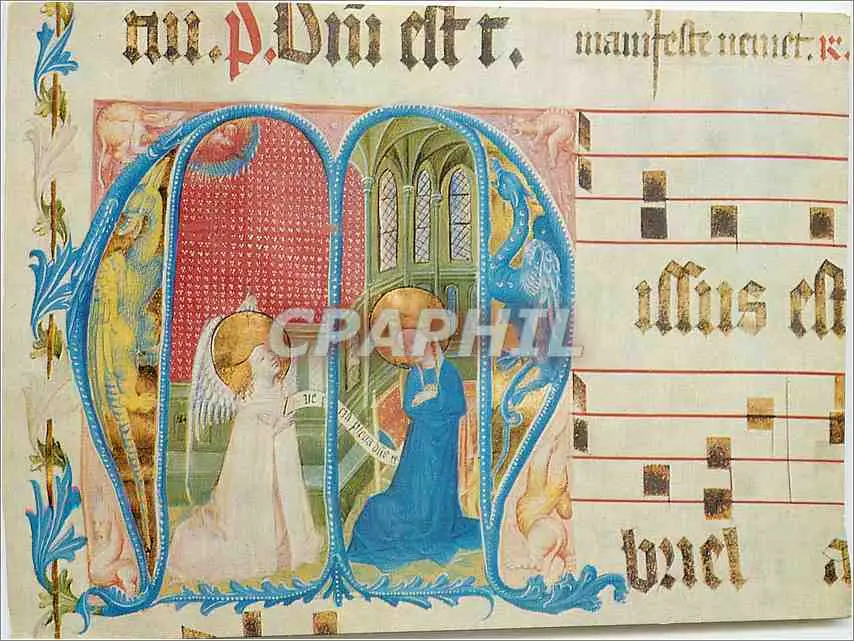 ni. p. Dñi est r.
manifeste veniet. R.
M
issus est
ue gracia plena dñs
briel a
CPAPHIL